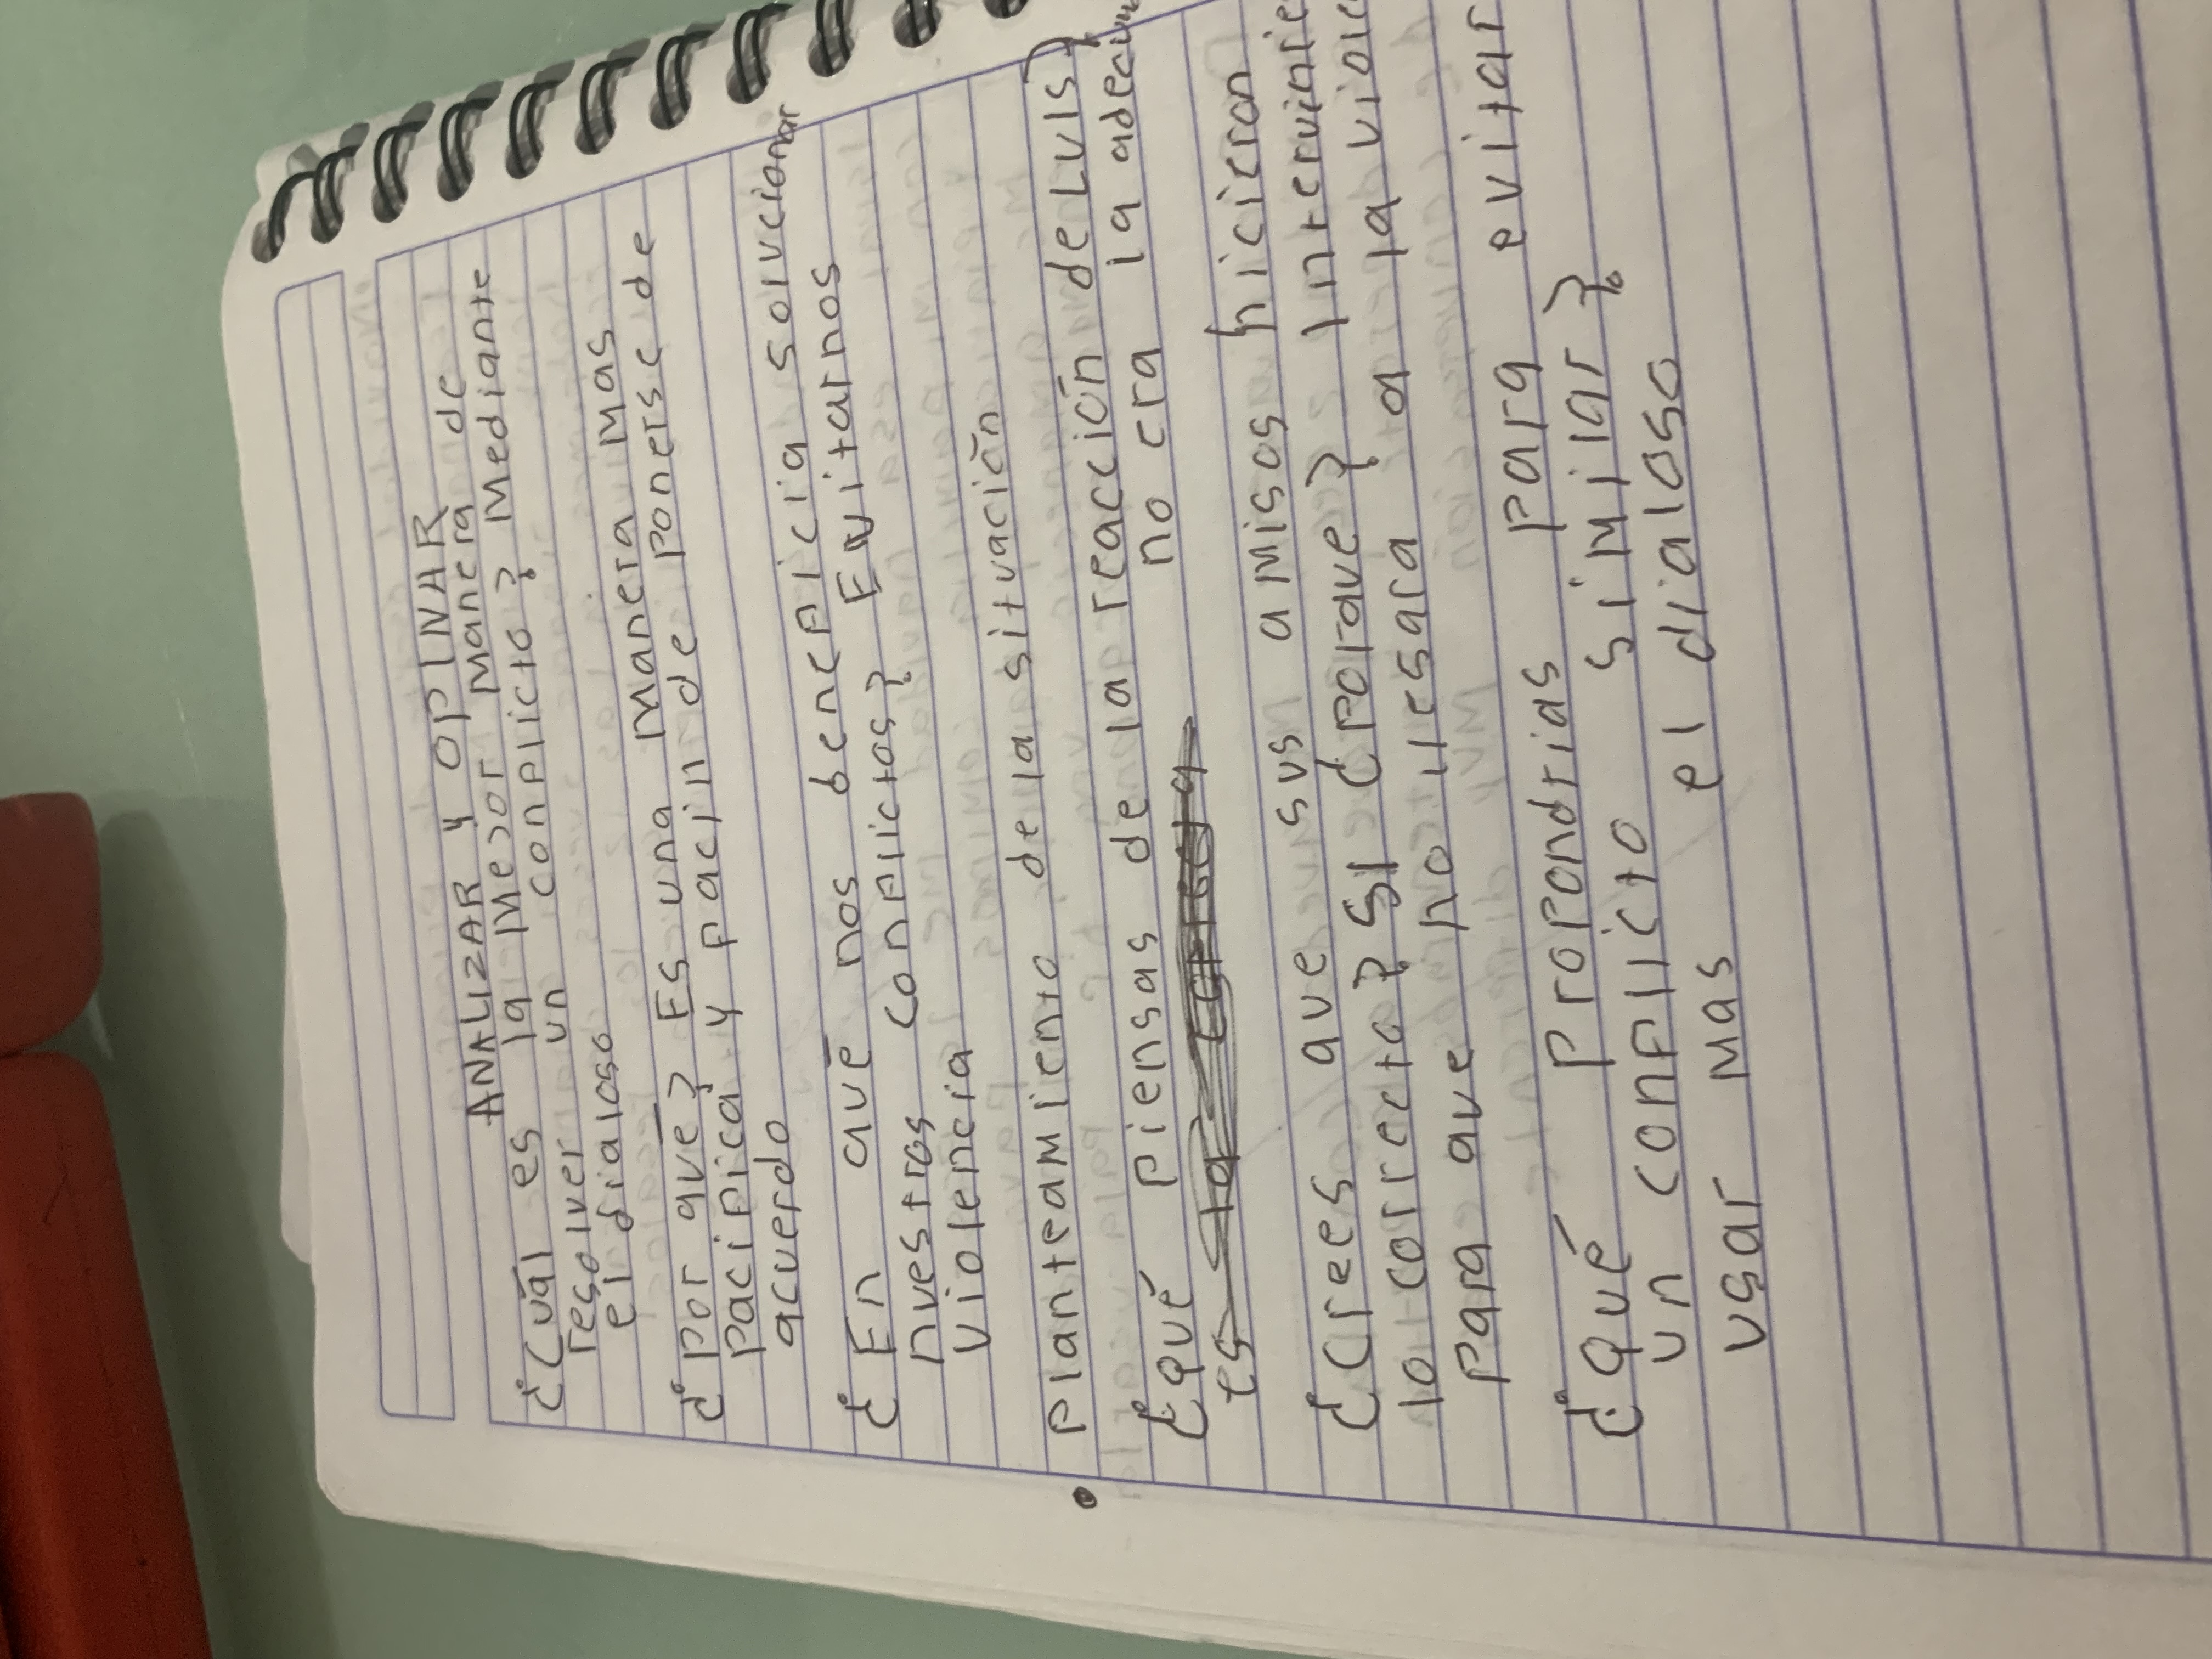 ANALIZAR y OPINAR
¿Cuál es la Mejor Manera de
resolver un conflicto? Mediante
el dialogo
¿por qué? Es una Manera Mas
pacifica y facin de ponerse de
acuerdo
¿En qué nos beneficia solucionar
nuestros conflictos? Evitarnos
violencia
planteamiento de la situación
¿qué piensas de la reacción de Luis?
no era la
¿Crees que sus amigos hicieron
lo correcto? SI ¿Porque?
para que no llegara a la
¿qué propondrias para evitar
un conflicto similar?
usar mas el dialogo